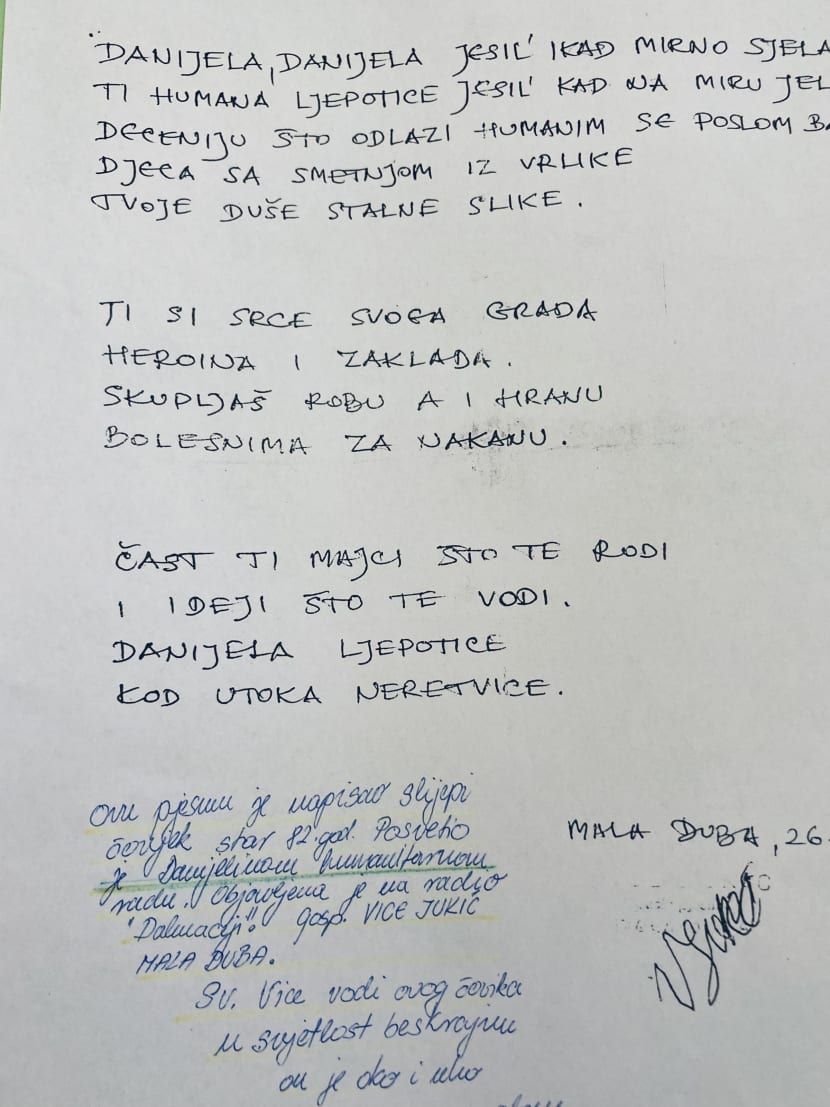 "DANIJELA, DANIJELA JESIL' IKAD MIRNO SJELA
TI HUMANA LJEPOTICE JESIL' KAD NA MIRU JEL
DECENIJU ŠTO ODLAZI HUMANIM SE POSLOM BA
DJECA SA SMETNJOM IZ VRLIKE
TVOJE DUŠE STALNE SLIKE.
TI SI SRCE SVOGA GRADA
HEROINA I ZAKLADA.
SKUPLJAŠ ROBU A I HRANU
BOLESNIMA ZA NAKANU.
ČAST TI MAJCI ŠTO TE RODI
I IDEJI ŠTO TE VODI.
DANIJELA LJEPOTICE
KOD UTOKA NERETVICE.
Ovu pjesmu je napisao slijepi
čovjek star 82.god. Posvetio
je Danijelinom humanitarnom
radu. Objavljena je na radijo
"Dalmaciji" gosp. VICE JUKIĆ
MALA DUBA.
MALA DUBA, 26.
Sv. Vice vodi ovog čovika
u svjetlost beskrajnu
on je oko i uho